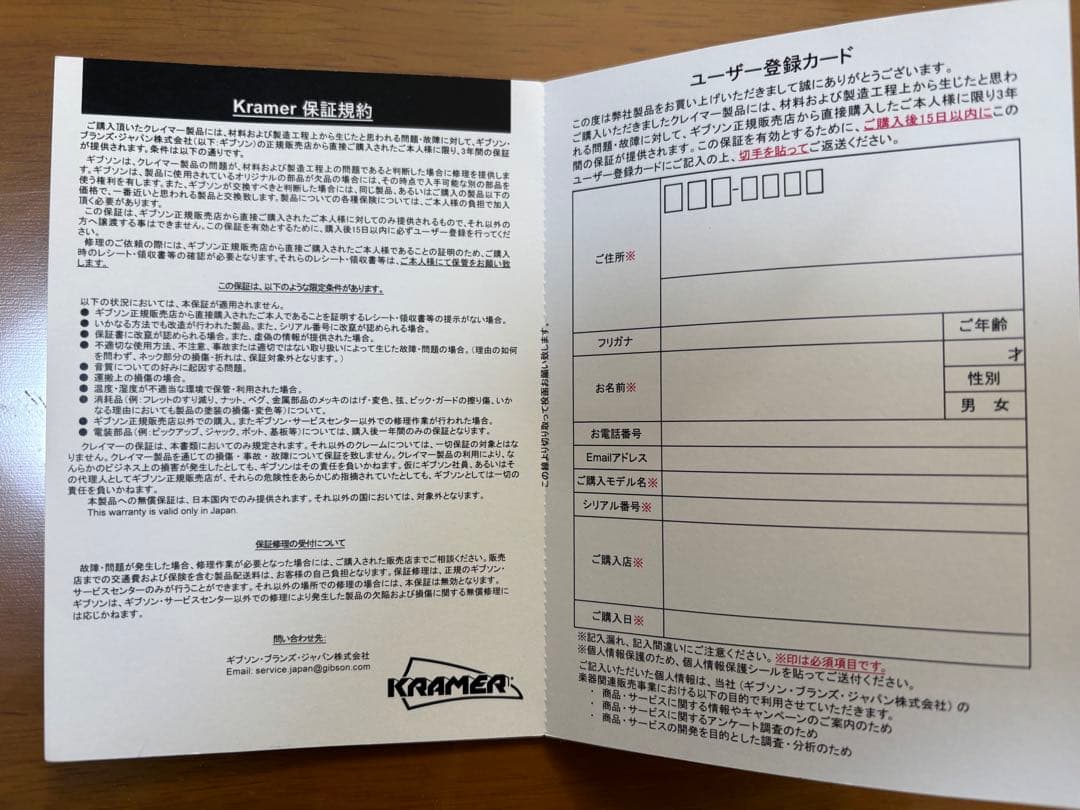 Kramer 保証規約
ご購入頂いたクレイマー製品には、材料および製造工程上から生じたと思われる問題・故障に対して、ギブソン・
ブランズ・ジャパン株式会社(以下：ギブソン)の正規販売店から直接ご購入されたご本人様に限り、3年間の保証
が提供されます。条件は以下の通りです。
ギブソンは、クレイマー製品の問題が、材料および製造工程上の問題であると判断した場合に修理を提供しま
す。ギブソンは、製品に使用されているオリジナルの部品が欠品の場合には、その時点で入手可能な別の部品を
使う権利を有します。また、ギブソンが交換すべきと判断した場合には、同じ製品、あるいはご購入の製品以下の
価格で、一番近いと思われる製品と交換致します。製品についての各種保険については、ご本人様の負担で加入
頂く必要があります。
この保証は、ギブソン正規販売店から直接ご購入されたご本人様に対してのみ提供されるもので、それ以外の
方へ譲渡する事はできません。この保証を有効とするために、購入後15日以内に必ずユーザー登録を行ってくだ
さい。
修理のご依頼の際には、ギブソン正規販売店から直接ご購入されたご本人様であることの証明のため、ご購入
時のレシート・領収書等の確認が必要となります。それらのレシート・領収書等は、ご本人様にて保管をお願い致
します。
この保証は、以下のような限定条件があります。
以下の状況においては、本保証が適用されません。
● ギブソン正規販売店から直接購入されたご本人であることを証明するレシート・領収書等の提示がない場合。
● いかなる方法でも改造が行われた製品。また、シリアル番号に改竄が認められる場合。
● 保証書に改竄が認められる場合。また、虚偽の情報が提供された場合。
● 不適切な使用方法、不注意、事故または適切ではない取り扱いによって生じた故障・問題の場合。（理由の如何
を問わず、ネック部分の損傷・折れは、保証対象外となります。）
● 音質についての好みに起因する問題。
● 運搬上の損傷の場合。
● 温度・湿度が不適当な環境で保管・利用された場合。
● 消耗品(例：フレットのすり減り、ナット、ペグ、金属部品のメッキのはげ・変色、弦、ピック・ガードの擦り傷、いか
なる理由においても製品の塗装の損傷・変色等)について。
● ギブソン正規販売店以外での購入。またギブソン・サービスセンター以外での修理作業が行われた場合。
● 電装部品(例：ピックアップ、ジャック、ポット、基板等)については、購入後一年間のみの保証となります。
クレイマーの保証は、本書類においてのみ規定されます。それ以外のクレームについては、一切保証の対象とはな
りません。クレイマー製品を通じての損傷・事故・故障について保証を致しません。クレイマー製品の利用により、な
んらかのビジネス上の損害が発生したとしても、ギブソンはその責任を負いかねます。仮にギブソン社員、あるいはそ
の代理人としてギブソン正規販売店が、それらの危険性をあらかじめ指摘されていたとしても、ギブソンとしては一切の
責任を負いかねます。
本製品への無償保証は、日本国内でのみ提供されます。それ以外の国においては、対象外となります。
This warranty is valid only in Japan.
保証修理の受付について
故障・問題が発生した場合、修理作業が必要となった場合には、ご購入された販売店までご相談ください。販売
店までの交通費および保険を含む製品配送料は、お客様の自己負担となります。保証修理は、正規のギブソン・
サービスセンターのみが行うことができます。それ以外の場所での修理の場合には、本保証は無効となります。
ギブソンは、ギブソン・サービスセンター以外での修理により発生した製品の欠陥および損傷に関する無償修理に
は応じかねます。
問い合わせ先：
ギブソン・ブランズ・ジャパン株式会社
Email: service.japan@gibson.com
KRAMER
この線より切り取って投函お願い致します。
ユーザー登録カード
この度は弊社製品をお買い上げいただきまして誠にありがとうございます。
ご購入いただきましたクレイマー製品には、材料および製造工程上から生じたと思わ
れる問題・故障に対して、ギブソン正規販売店から直接購入したご本人様に限り3年
間の保証が提供されます。この保証を有効とするために、ご購入後15日以内にこの
ユーザー登録カードにご記入の上、切手を貼ってご返送ください。
ご住所※
フリガナ
ご年齢
才
お名前※
性別
男 女
お電話番号
Emailアドレス
ご購入モデル名※
シリアル番号※
ご購入店※
ご購入日※
※記入漏れ、記入間違いにご注意ください。※印は必須項目です。
※個人情報保護のため、個人情報保護シールを貼ってご送付ください。
ご記入いただいた個人情報は、当社（ギブソン・ブランズ・ジャパン株式会社）の
楽器関連販売事業における以下の目的で利用させていただきます。
・ 商品・サービスに関する情報やキャンペーンのご案内のため
・ 商品・サービスに関するアンケート調査のため
・ 商品・サービスの開発を目的とした調査・分析のため